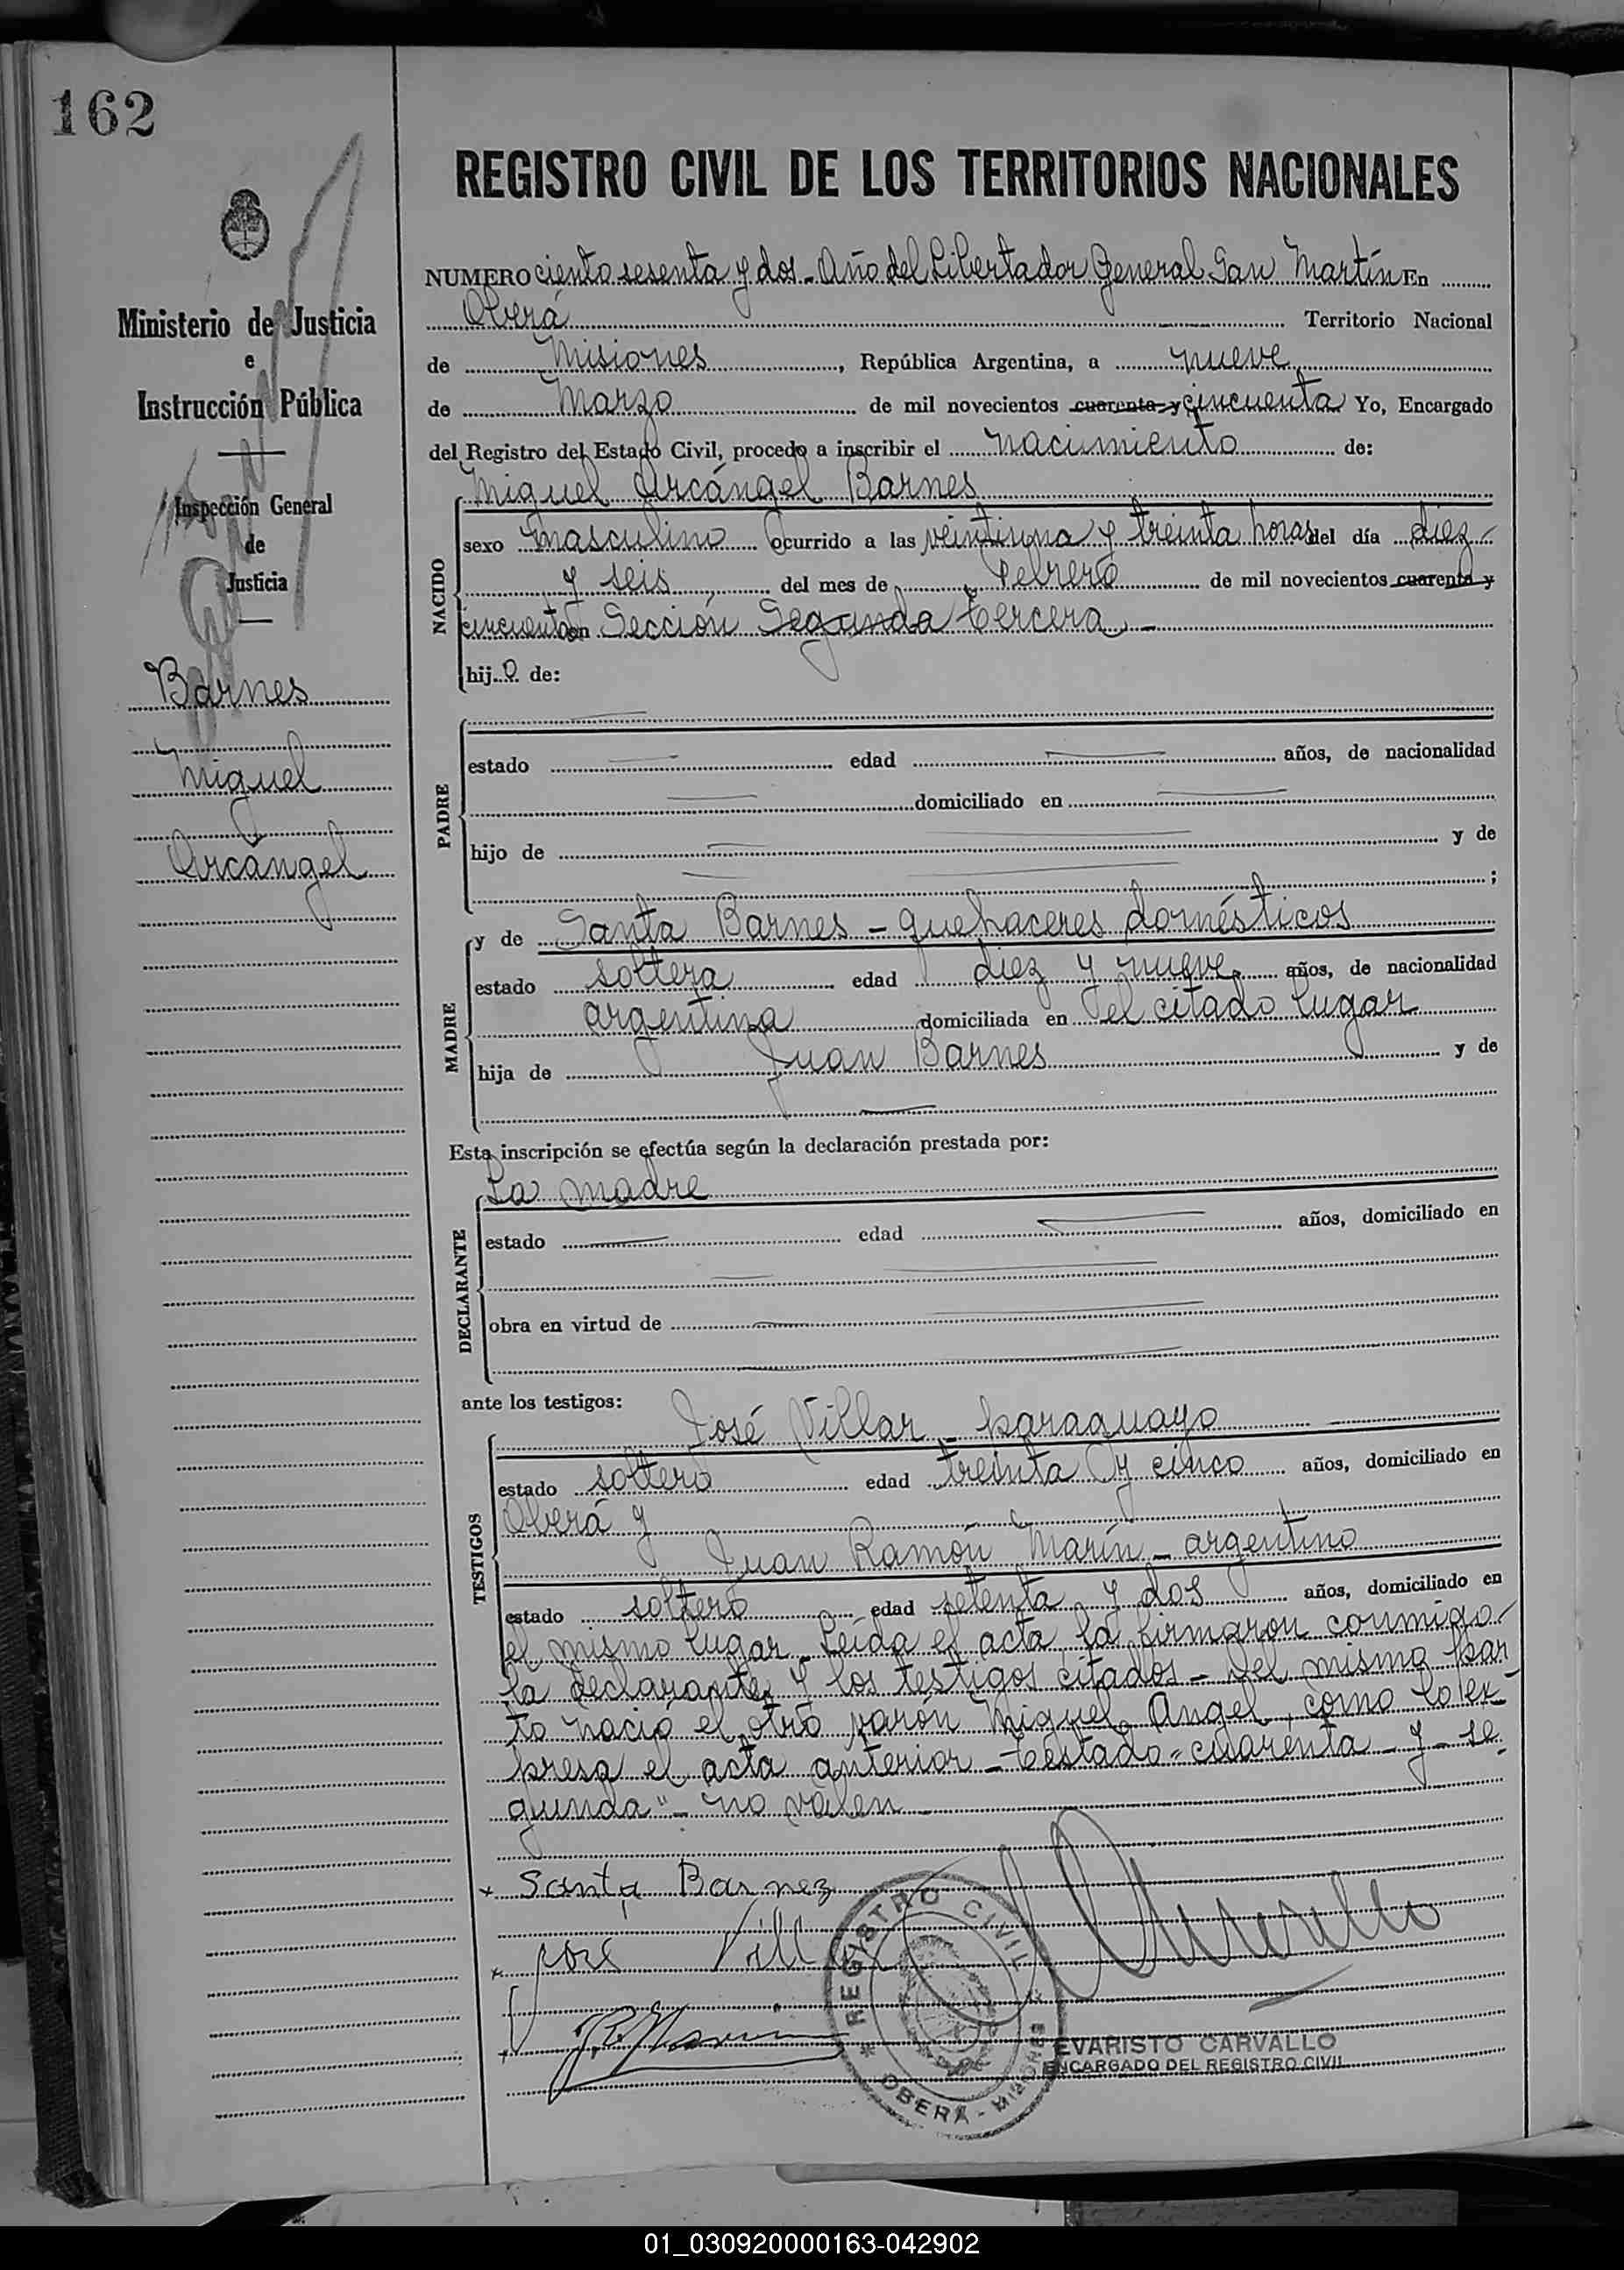 162
REGISTRO CIVIL DE LOS TERRITORIOS NACIONALES
Ministerio de Justicia
e
Instrucción Pública
Inspección General
de
Justicia
Barnes
Miguel
Arcángel
NUMERO ciento sesenta y dos - Año del Libertador General San Martín En
Oberá Territorio Nacional
de Misiones, República Argentina, a nueve
de Marzo de mil novecientos cuarenta y cincuenta Yo, Encargado
del Registro del Estado Civil, procedo a inscribir el nacimiento de:
Miguel Arcángel Barnes
NACIDO
sexo masculino ocurrido a las veintiuna y treinta horas del día diez
y seis del mes de Febrero de mil novecientos cuarenta y
cincuenta en Sección Segunda tercera -
hijo de:
PADRE
estado edad años, de nacionalidad
domiciliado en
hijo de y de
;
MADRE
y de Santa Barnes - quehaceres domésticos
estado soltera edad diez y nueve años, de nacionalidad
argentina domiciliada en el citado lugar
hija de Juan Barnes y de
Esta inscripción se efectúa según la declaración prestada por:
La madre
DECLARANTE
estado edad años, domiciliado en
obra en virtud de
ante los testigos:
TESTIGOS
José Villar - paraguayo
estado soltero edad treinta y cinco años, domiciliado en
Oberá y
Juan Ramón Marín - argentino
estado soltero edad setenta y dos años, domiciliado en
el mismo lugar - Leída el acta la firmaron conmigo
la declarante y los testigos citados - del mismo par
to nació el otro varón Miguel Angel, como lo ex-
presa el acta anterior - testado "cuarenta - y - se-
gunda" - no valen
x Santa Barnez
x José Villar
x J. R. Marin
REGISTRO CIVIL
* OBERA - MISIONES *
EVARISTO CARVALLO
ENCARGADO DEL REGISTRO CIVIL
01_030920000163-042902